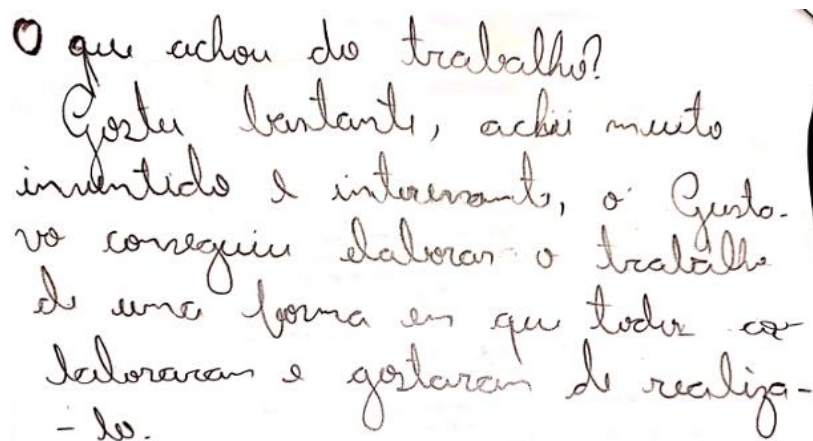 O que achou do trabalho?
Gostei bastante, achei muito
inventido e interessante, o Gusta-
vo conseguiu elaborar o trabalho
de uma forma em que todos co-
laboraram e gostaram de realiza-
- lo.